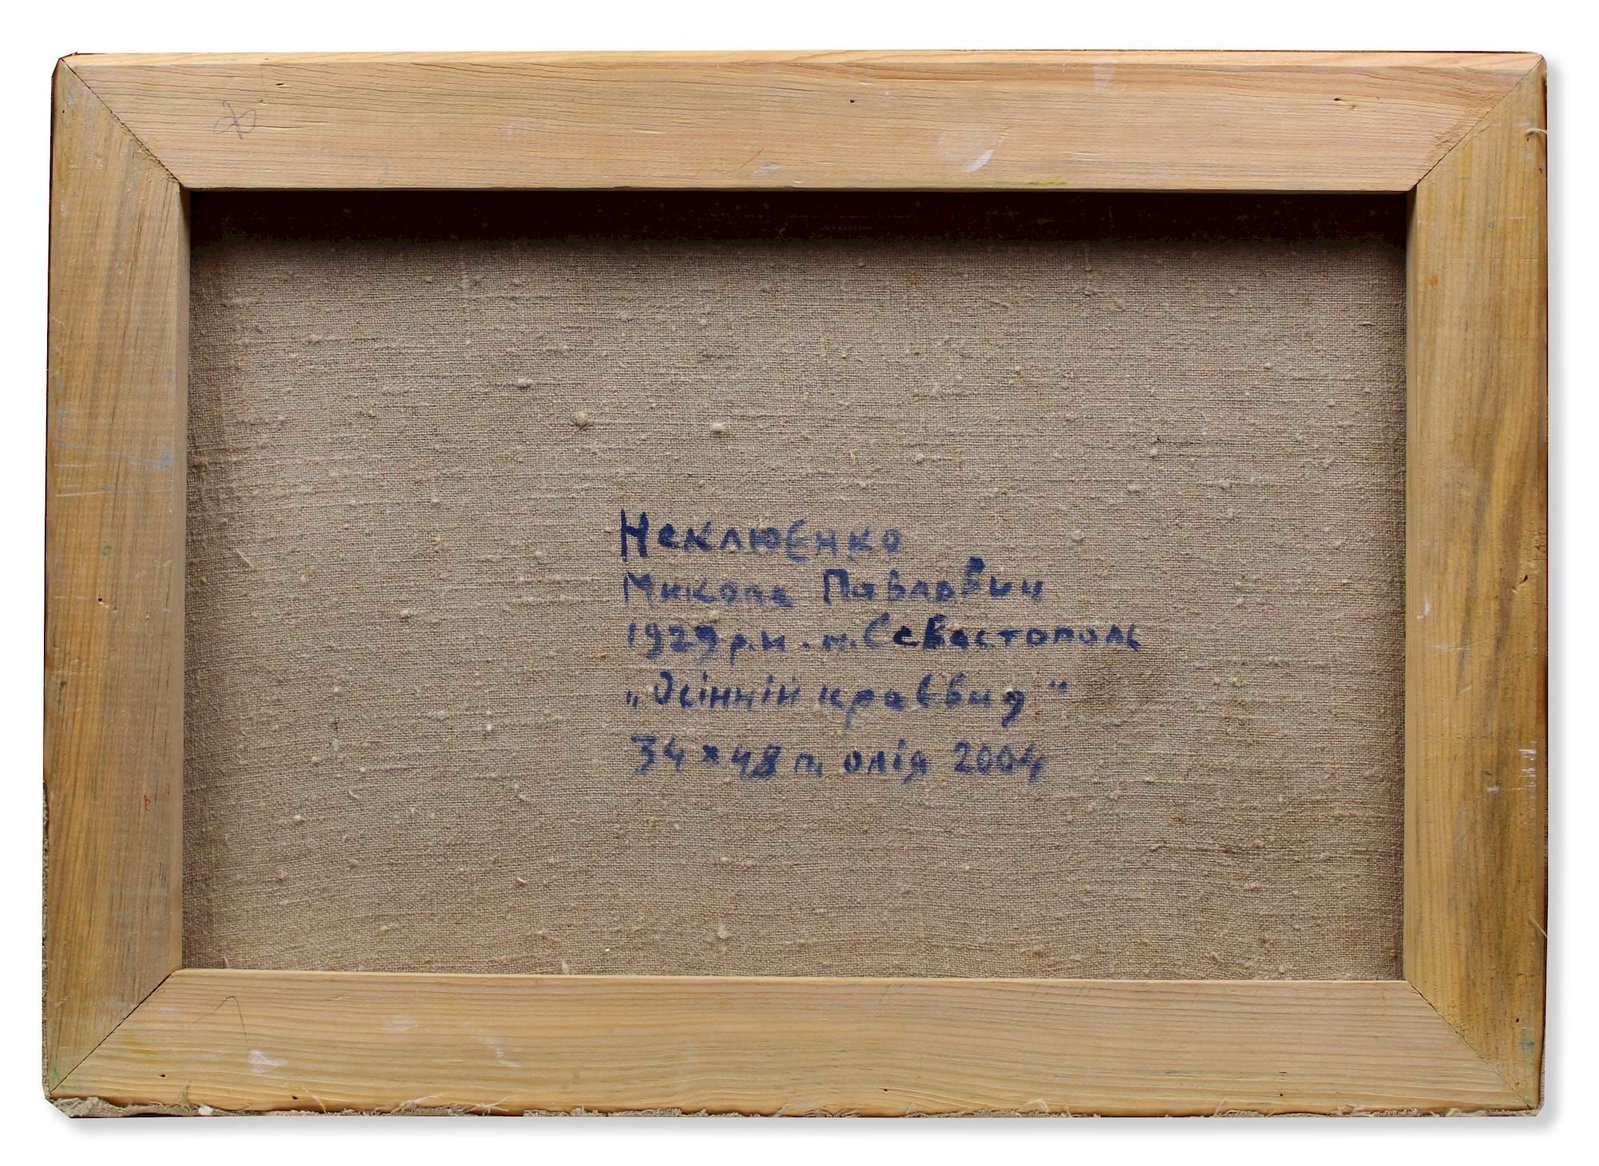 Неклюєнко
Микола Павлович
1929 р.н. м. Севастополь
„Осінній краєвид"
34×48 п, олія 2004